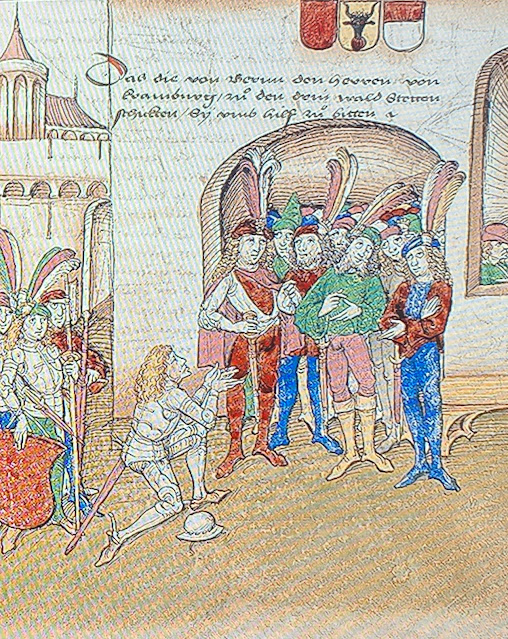 Das die von Bernn den herren von
kramburg / zů den drin wald Stetten
schickten / Sy vmb hilf zů bitten